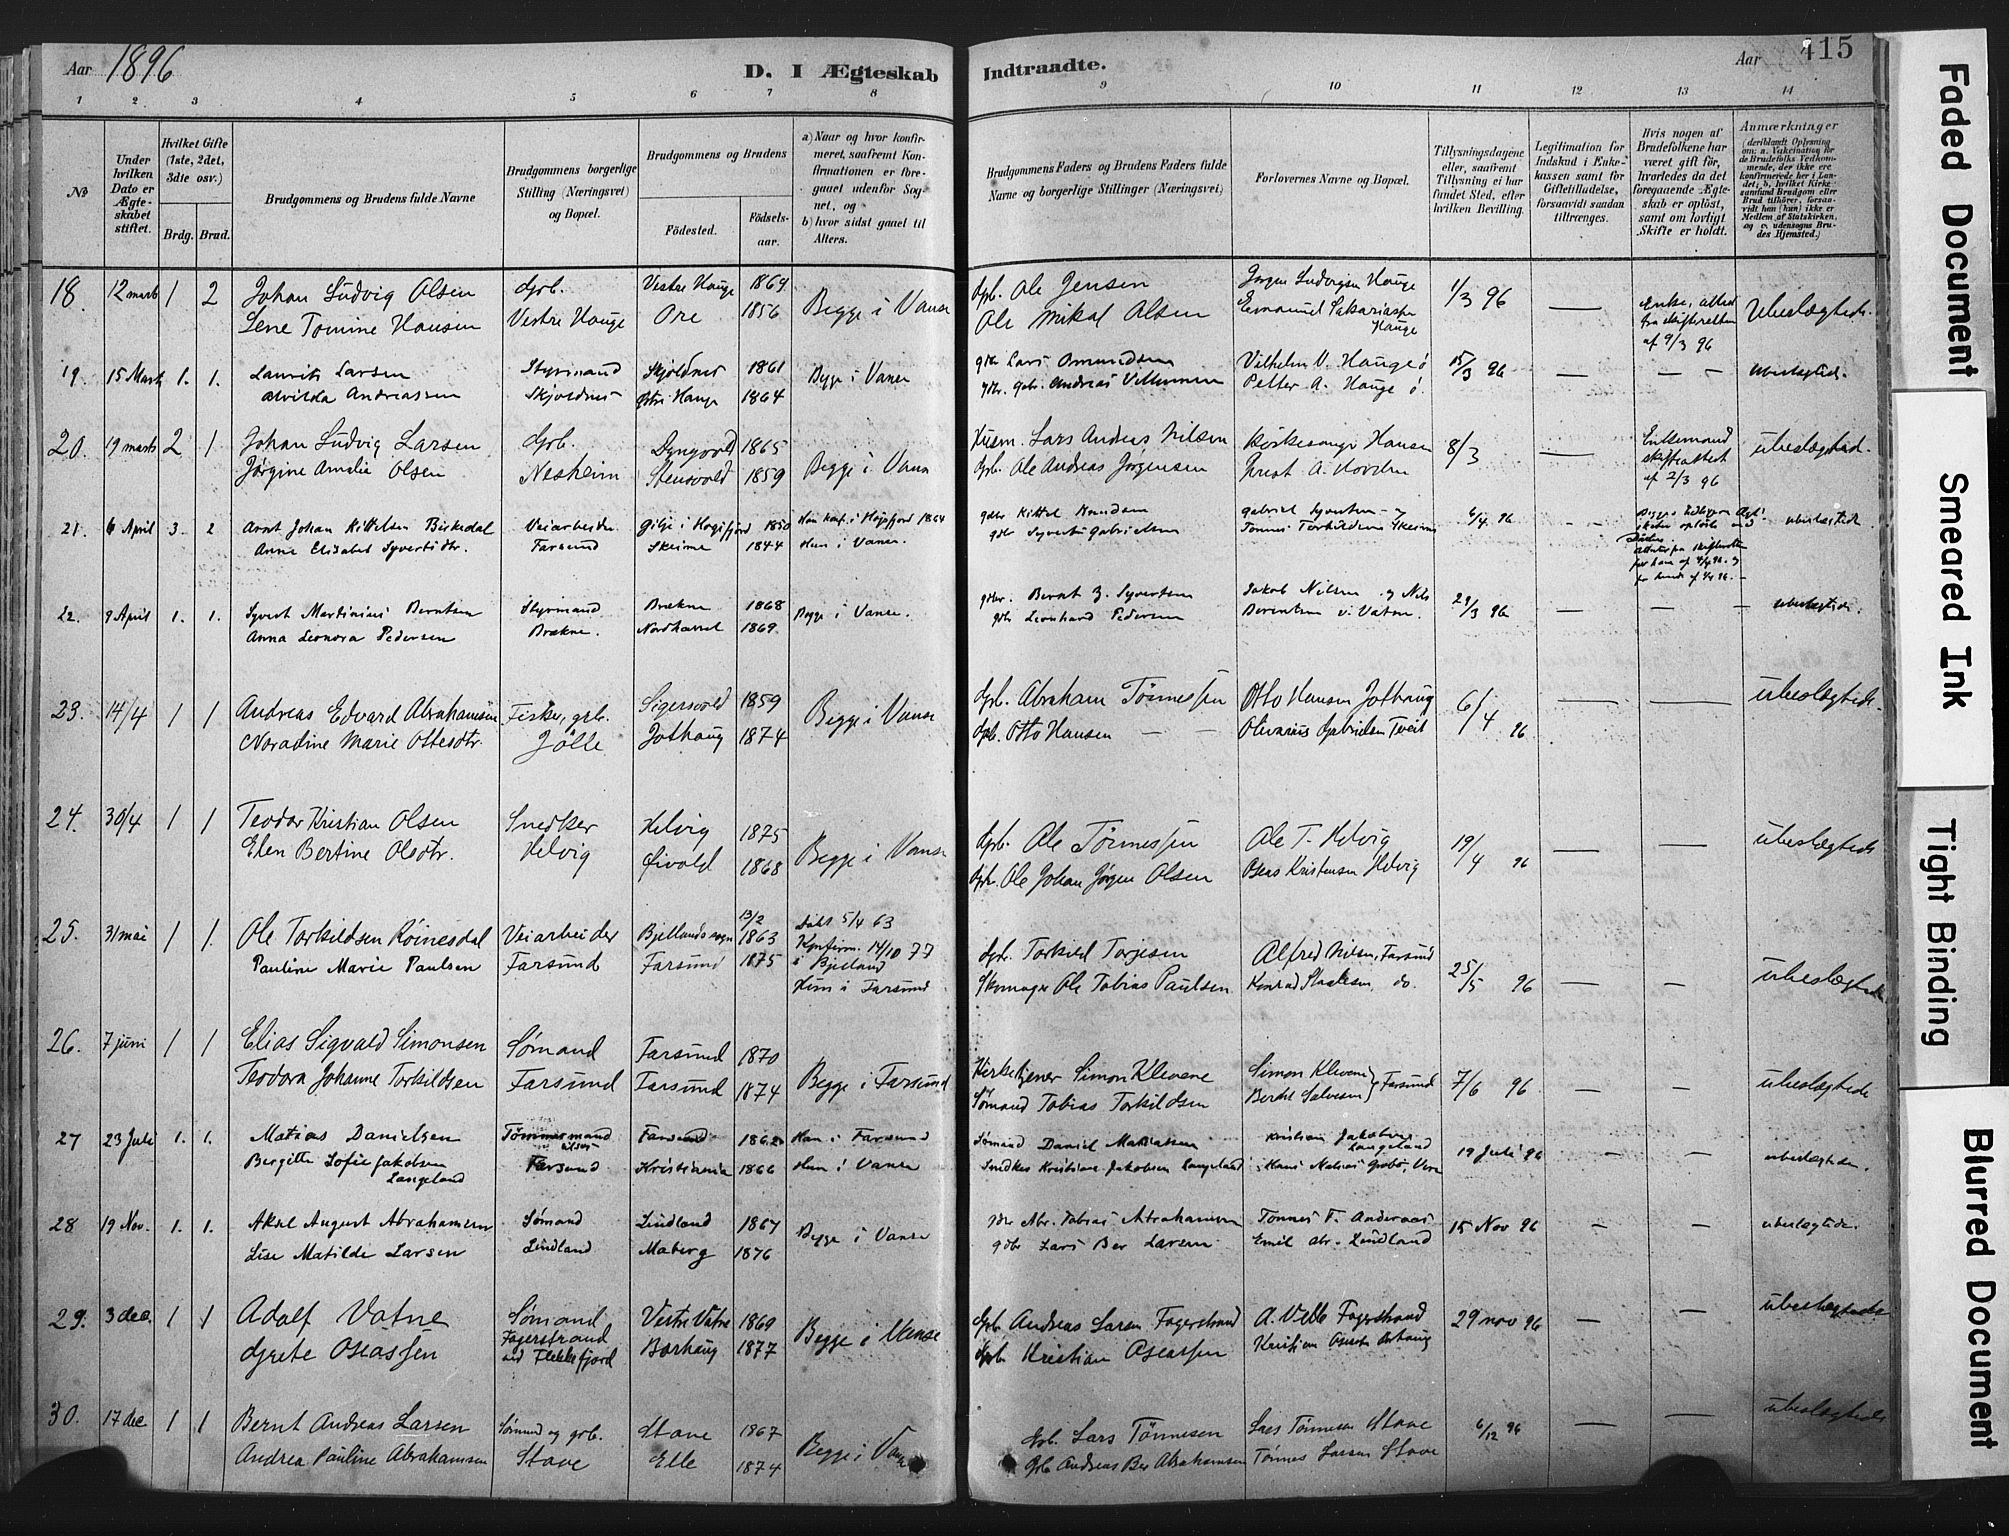 Aar 1896
D. I Ægteskab Indtraadte.
Aar 415
1 2 3 4 5 6 7 8 9 10 11 12 13 14
No
Under hvilken Dato er Ægteskabet stiftet.
Hvilket Gifte (1ste, 2det, 3die osv.)
Brdg. Brud.
Brudgommens og Brudens fulde Navne
Brudgommens borgerlige Stilling (Næringsvei) og Bopæl.
Brudgommens og Brudens
Fødested.
Fødselsaar.
a) Naar og hvor konfirmeret, saafremt Konfirmationen er foregaaet udenfor Sognet, og
b) hvor sidst gaaet til Alters.
Brudgommens Faders og Brudens Faders fulde Navne og borgerlige Stillinger (Næringsvei)
Forlovernes Navne og Bopæl.
Tillysningsdagene eller, saafremt Tillysning ei har fundet Sted, efter hvilken Bevilling.
Legitimation for Indskud i Enkekassen samt for Giftetilladelse, forsaavidt saadan tiltrænges.
Hvis nogen af Brudefolkene har været gift før, hvorledes da det foregaaende Ægteskab er opløst, samt om lovligt Skifte er holdt.
Anmærkninger (deriblandt Oplysning om: a. Vakcination for de Brudefolks Vedkommende, der ikke ere konfirmerede her i Landet; b. hvilket Kirkesamfund Brudgom eller Brud tilhører, forsaavidt han (hun) ikke er Medlem af Statskirken, og c. udensogns Brudes Hjemsted.)
18. 12 marts 1 2 Johan Ludvig Olsen Grb. Vestre Hauge 1864 Begge i Vanse Grb. Ole Jensen Jørgen Ludvigsen Hauge 1/3 96 — Enke, attest ubeslægtede.
Lene Tomine Hansen Vestre Hauge Ore 1856 Ole Mikal Olsen Emanuel Sakariasen Hauge fra skifteretten af 9/3 96
19. 15 Marts 1. 1. Laurits Larsen Styrmand Skjoldnes 1861 Begge i Vanse gbr Lars Omundsen Vilhelm V. Hauge ø 15/3 96 — — — ubeslægtede.
Alvilda Andreassen Skjoldnes Østre Hauge 1864 gbr. Andreas Villumsen Petter A. Hauge ø.
20. 19 marts 2 1 Johan Ludvig Larsen Grb. Dyngvold 1865 Begge i Vanse Husm. Lars Andreas Nilsen Kirkesanger Hansen 8/3 — Enkemand skifteattest af 2/3 96 ubeslægtede.
Jørgine Amalie Olsen Nesheim Stensvold 1859 Grb. Ole Andreas Jørgensen Prest A. Hovden
21. 6 April 3. 2 Arnt Johan Kittelsen Birkedal Veiarbeider Gilje i Høgsfjord 1850 Han konf. i Høgsfjord 1864 gbr Kittel Knudsen Gabriel Syvertsen og 6/4 96 - - ubeslægtede.
Anne Elisabet Syvertsdtr. Farsund Skeime 1844 Hun i Vanse. gbr Syvert Gabrielsen Tønnes Torkildsen Skeime
22. 9 April 1. 1. Syvert Martinius Berntsen Styrmand Brækne 1868 Begge i Vanse. gbr. Bernt Z. Syvertsen Jakob Nilsen og Nils 29/3 96 — — — ubeslægtede.
Anna Leonora Pedersen Brekne. Nordhassel 1869. gbr Leonhard Pedersen Berintsen v. Vatne.
23. 14/4 1 1 Andreas Edvard Abrahamsen Fisker, grb. Sigersvold 1859 Begge i Vanse Grb. Abraham Tønnessen Otto Hansen Jothaug 6/4 96 — — ubeslægtede.
Noradine Marie Ottesdtr. Jølle Jothaug 1874 Grb. Otto Hansen — — Olivarius Gabrielsen Tveit
24. 30/4 1 1 Teodor Kristian Olsen Snedker Helvig 1875 Begge i Vanse Grb. Ole Tønnessen Ole T. Helvig 19/4 96 — — ubeslægtede
Elen Bertine Olsdtr. Helvig Øivold 1868 Gbr. Ole Johan Jørgen Olsen Oseas Kristensen Helvig
25. 31 mai 1 1. Ole Torkildsen Røinesdal Veiarbeider Bjellands sogn 13/2 1863 Døbt 5/4 63 Konfirm. 14/10 77 i Bjelland Grb. Torkild Torjesen Alfred Nilsen, Farsund 25/5 96 — — ubeslægtede
Pauline Marie Paulsen Farsund Farsund 1875 Hun i Farsund Skomager Ole Tobias Paulsen Konrad Staalesen, do.
26. 7 juni 1 1 Elias Sigvald Simonsen Sømand Farsund 1870 Begge i Farsund Kirketjener Simon Klevene Simon Klevene } Farsund 7/6 96 — — ubeslægtede
Teodora Johanne Torkildsen Farsund Farsund 1874 Sømand Tobias Torkildsen Bertil Salvesen
27 23 Juli 1. 1. Matias Danielsen Tømmermand Farsund 1862 Han i Farsund Sømand Daniel Matiassen Kristian Jakobsen Langeland 19 Juli 96 — — ubeslægtede.
Bergitte Sofie Jakobsen Langeland Farsund Kristiania 1866 Hun i Vanse Snedker Kristian Jakobsen Langeland
28 19 Nov. 1. 1. Aksel August Abrahamsen Sømand Lindland 1867 Begge i Vanse gbr Abr. Tobias Abrahamsen Tønnes T. Andersen 15 Nov 96 — — ubeslægtede.
Lise Matilde Larsen Lindland Maberg 1876 gbr Lars Ber Larsen Emil Abr. Lindland
29. 3 dec. 1 1 Adolf Vatne Sømand Vestre Vatne 1869 Begge i Vanse Grb. Andreas Larsen Fagerstrand A. Fagerstrand 29 nov 96 — — ubeslægtede
Grete Oseassen Fagerstrand ved Flekkefjord Borhaug 1877 Grb. Kristian Oseassen Kristian Oseassen Borhaug
30. 17 dec 1 1 Bernt Andreas Larsen Sømand og grb. Stave 1867 Begge i Vanse Grb. Lars Tønnesen Lars Tønnesen Stave 6/12 96 — — ubeslægtede
Andrea Pauline Abrahamsen Stave Elle 1874 Grb Andreas Ber Abrahamsen Tønnes Larsen Stave
Faded Document
Smeared Ink
Tight Binding
Blurred Document